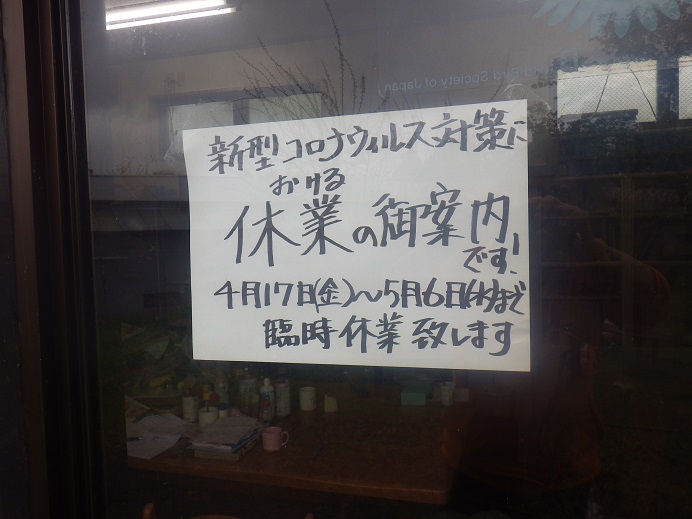 新型コロナウィルス対策に
おける
休業の御案内
です!
4月17日(金)~5月6日(水)まで
臨時休業致します
rd Society of Japan